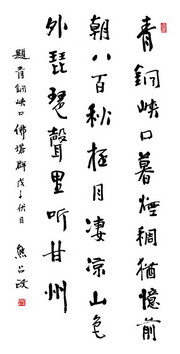 青銅峽口暮煙稠猶憶前
朝八百秋極目凄涼山色
外琵琶聲里听甘州
題青銅峽口佛塔群戊子伏日
熊召政